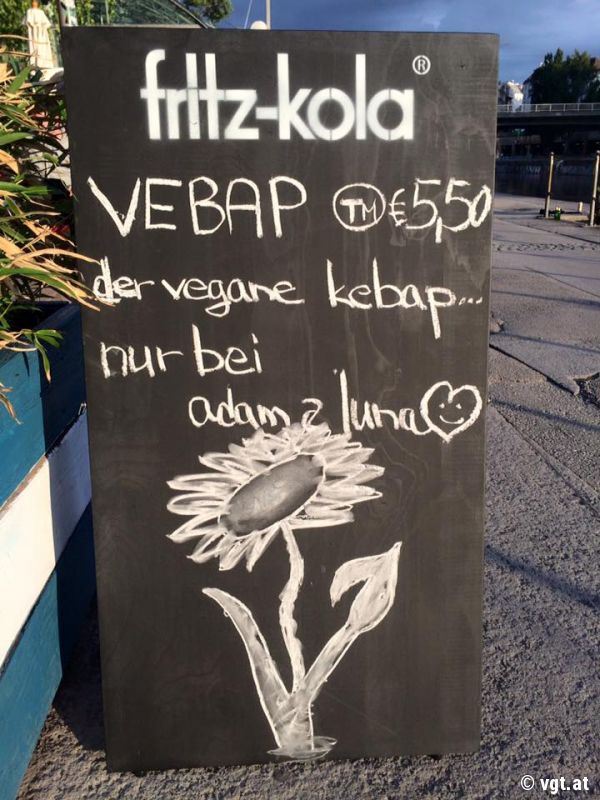 fritz-kola®
VEBAP ™ €5,50
der vegane kebap...
nur bei
adam & luna
© vgt.at